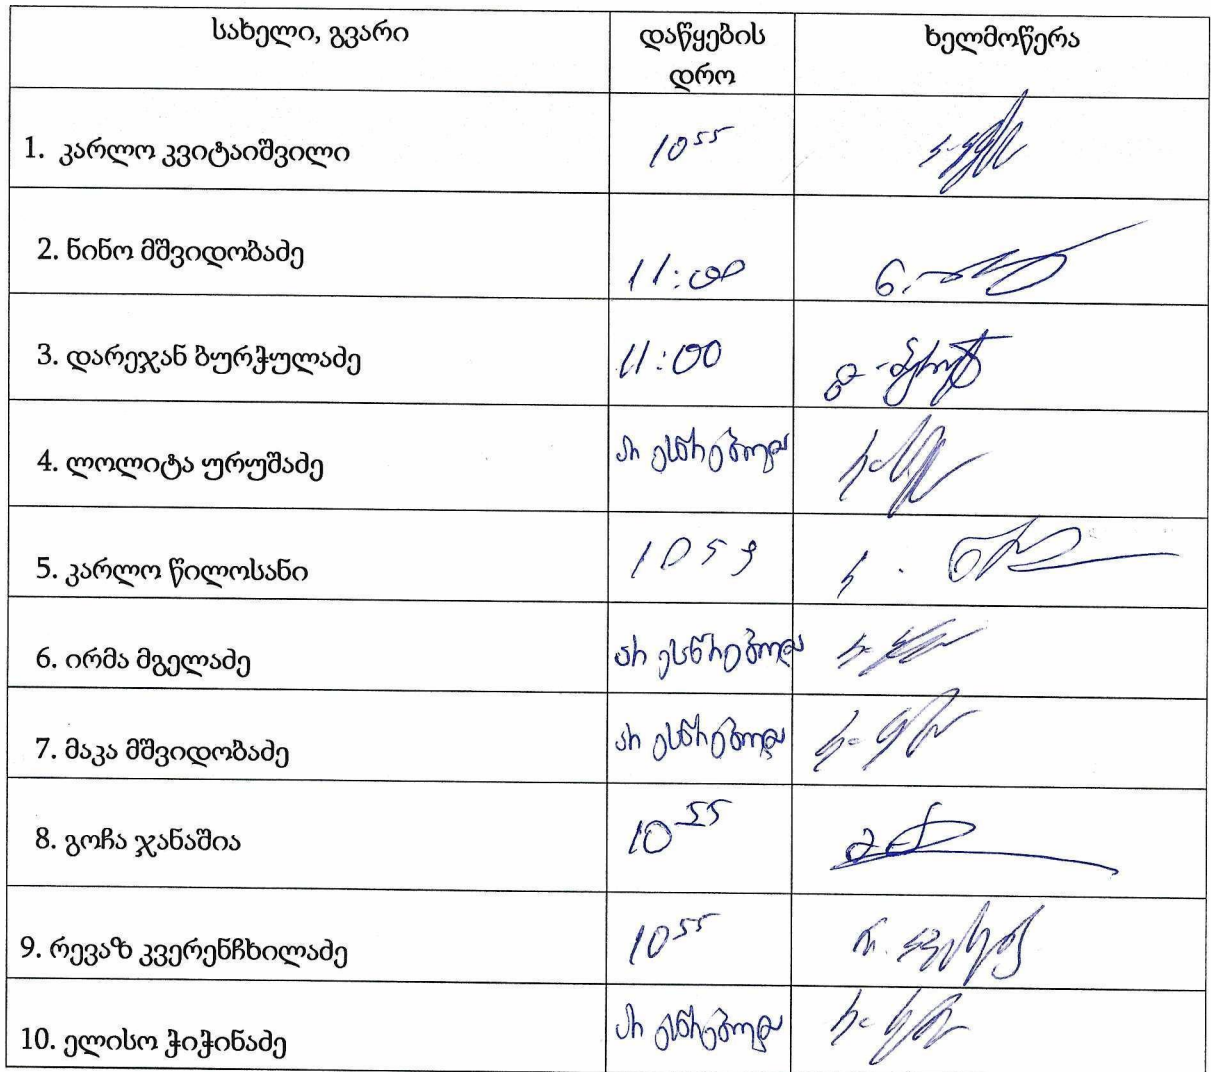 სახელი, გვარი
დაწყების
დრო
ხელმოწერა
1. კარლო კვიტაიშვილი
10⁵⁵
2. ნინო მშვიდობაძე
11:00
3. დარეჯან ბურჭულაძე
11:00
4. ლოლიტა ურუშაძე
არ ესწრებოდა
5. კარლო წილოსანი
1059
6. ირმა მგელაძე
არ ესწრებოდა
7. მაკა მშვიდობაძე
არ ესწრებოდა
8. გოჩა ჯანაშია
10⁵⁵
9. რევაზ კვერენჩხილაძე
10⁵⁵
10. ელისო ჭიჭინაძე
არ ესწრებოდა